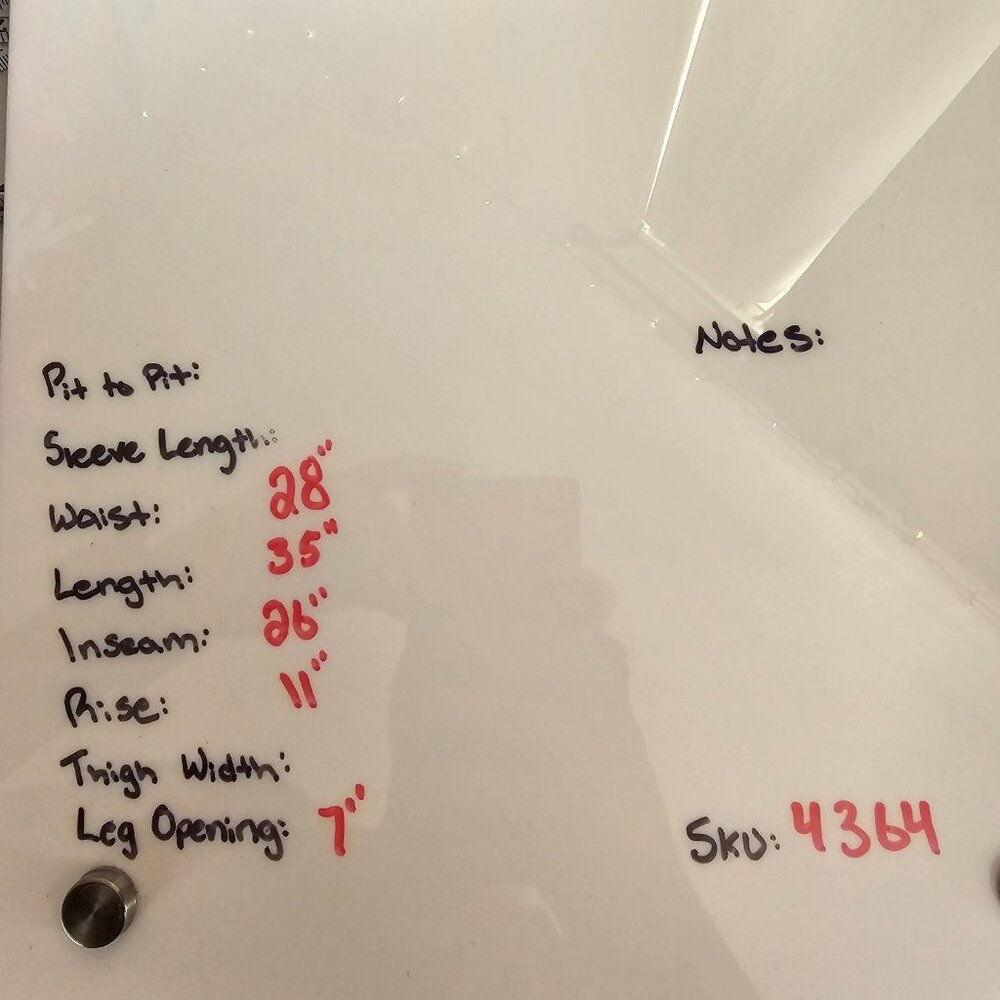 Notes:
Pit to Pit:
Sleeve Length:
Waist: 28"
Length: 35"
Inseam: 26"
Rise: 11"
Thigh Width:
Leg Opening: 7"
SKU: 4364